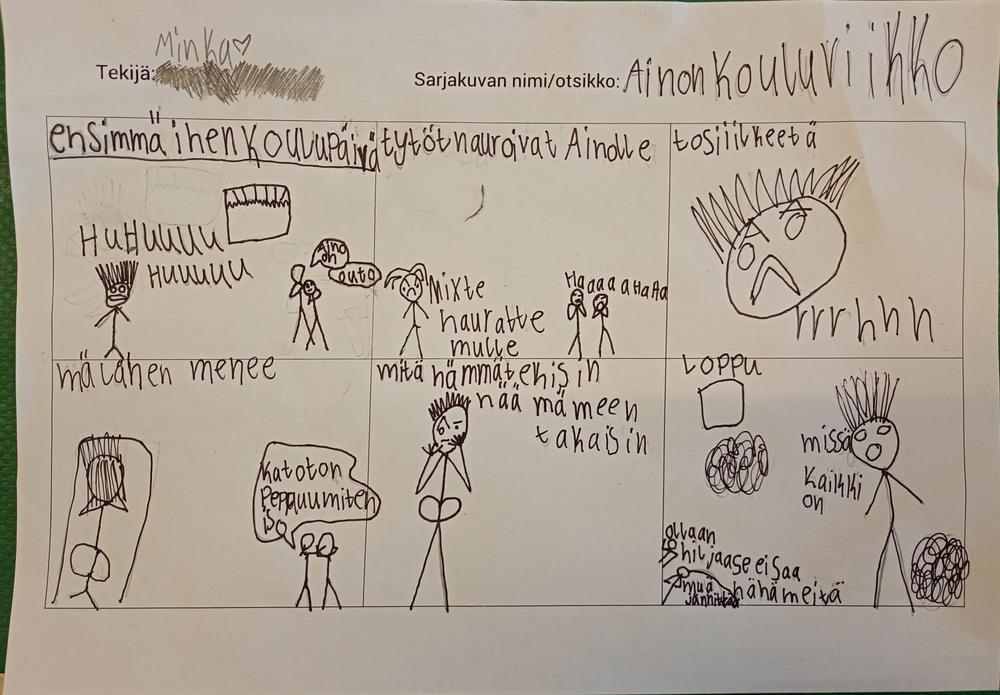 Minka♡
Tekijä:
Sarjakuvan nimi/otsikko: Ainon kouluviikko
ensimmäinen koulupäivä
HUHUUUU
HUUUUU
Aino
on
outo
tytöt nauroivat Ainolle
Mixte
nauratte
mulle
HaaaaaHaHa
tosi ilkeetä
rrrhhh
mä lähen menee
Katoton
peppuumiten
iso
mitä hämmätekisin
nää mä meen
takaisin
Loppu
missä
kaikki
on
ollaan
hiljaase ei saa
nähä meitä
mua
jännittää